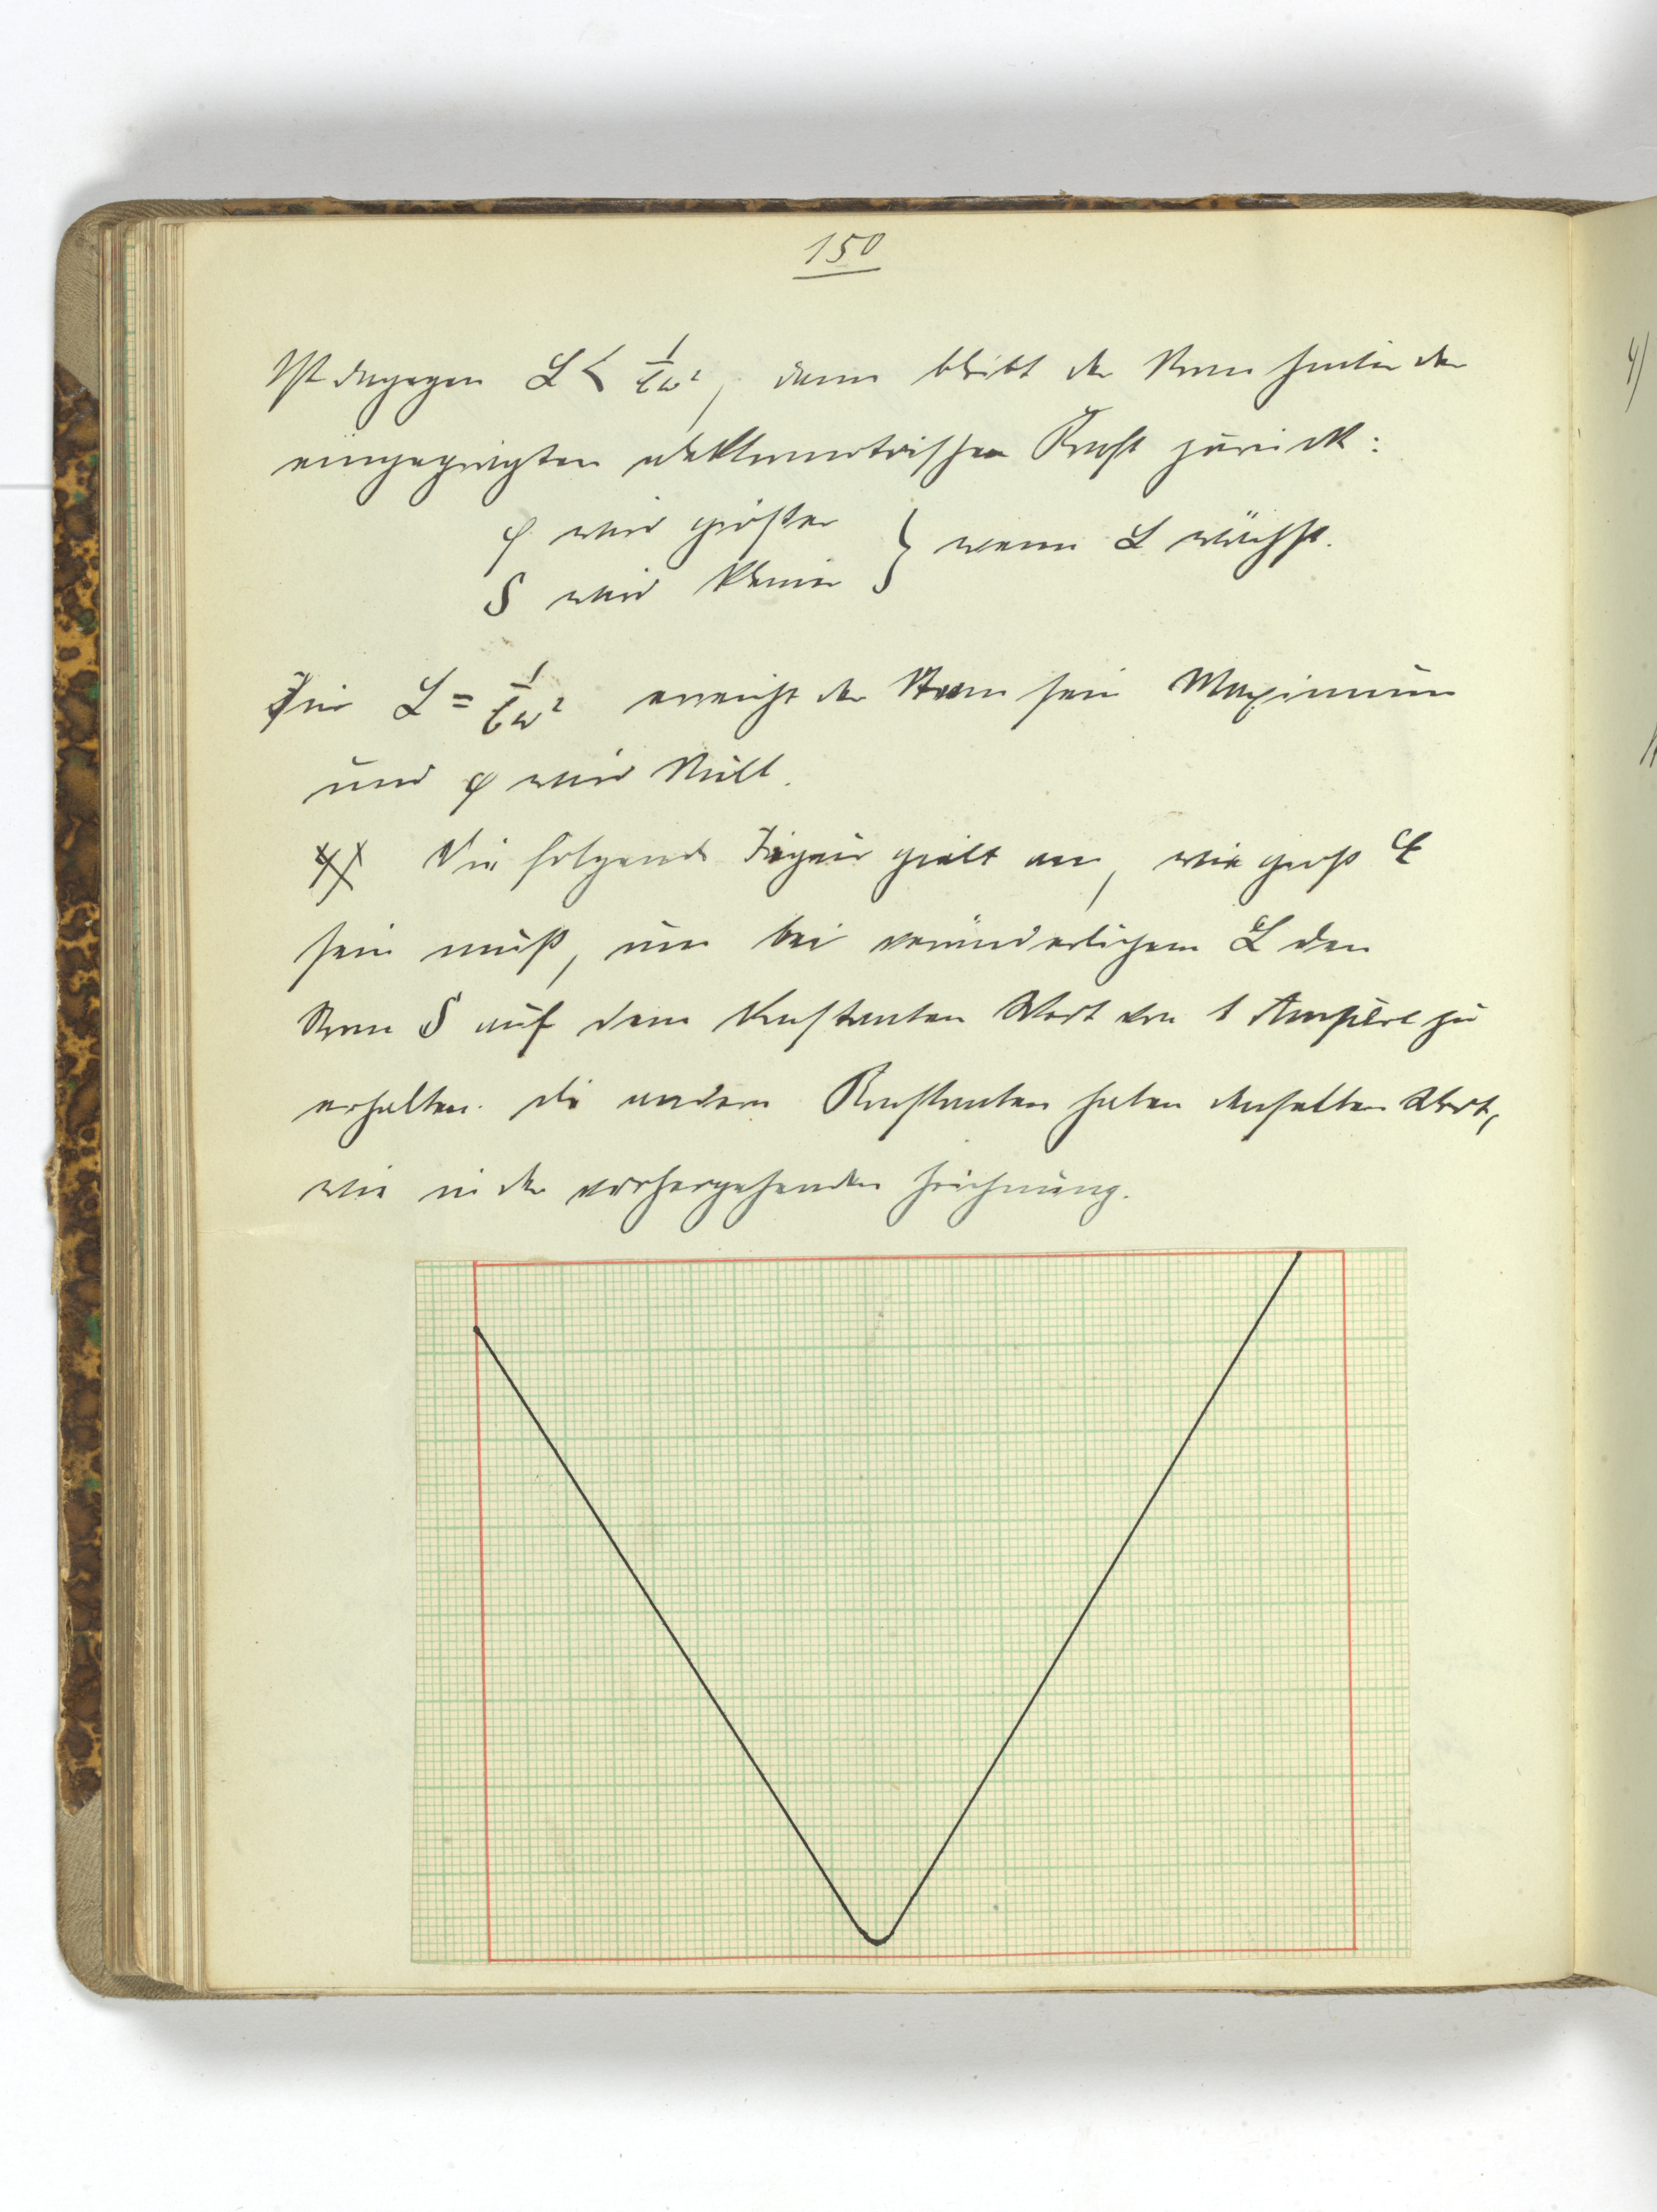 150
Ist dagegen L < 1/Cω², dann bleibt der Strom hinter der
eingeprägten elektromotorischen Kraft zurück:
φ wird größer
S wird kleiner } wenn L wächst.
Für L = 1/Cω² erreicht der Strom sein Maximum
und φ wird Null.
Die folgende Figur gibt an, wie groß E
sein muß, um bei veränderlichem L den
Strom S auf dem Konstanten Wert von 1 Ampère zu
erhalten. die andern Konstanten haben denselben Wert,
wie in der vorhergehenden Zeichnung.
4)